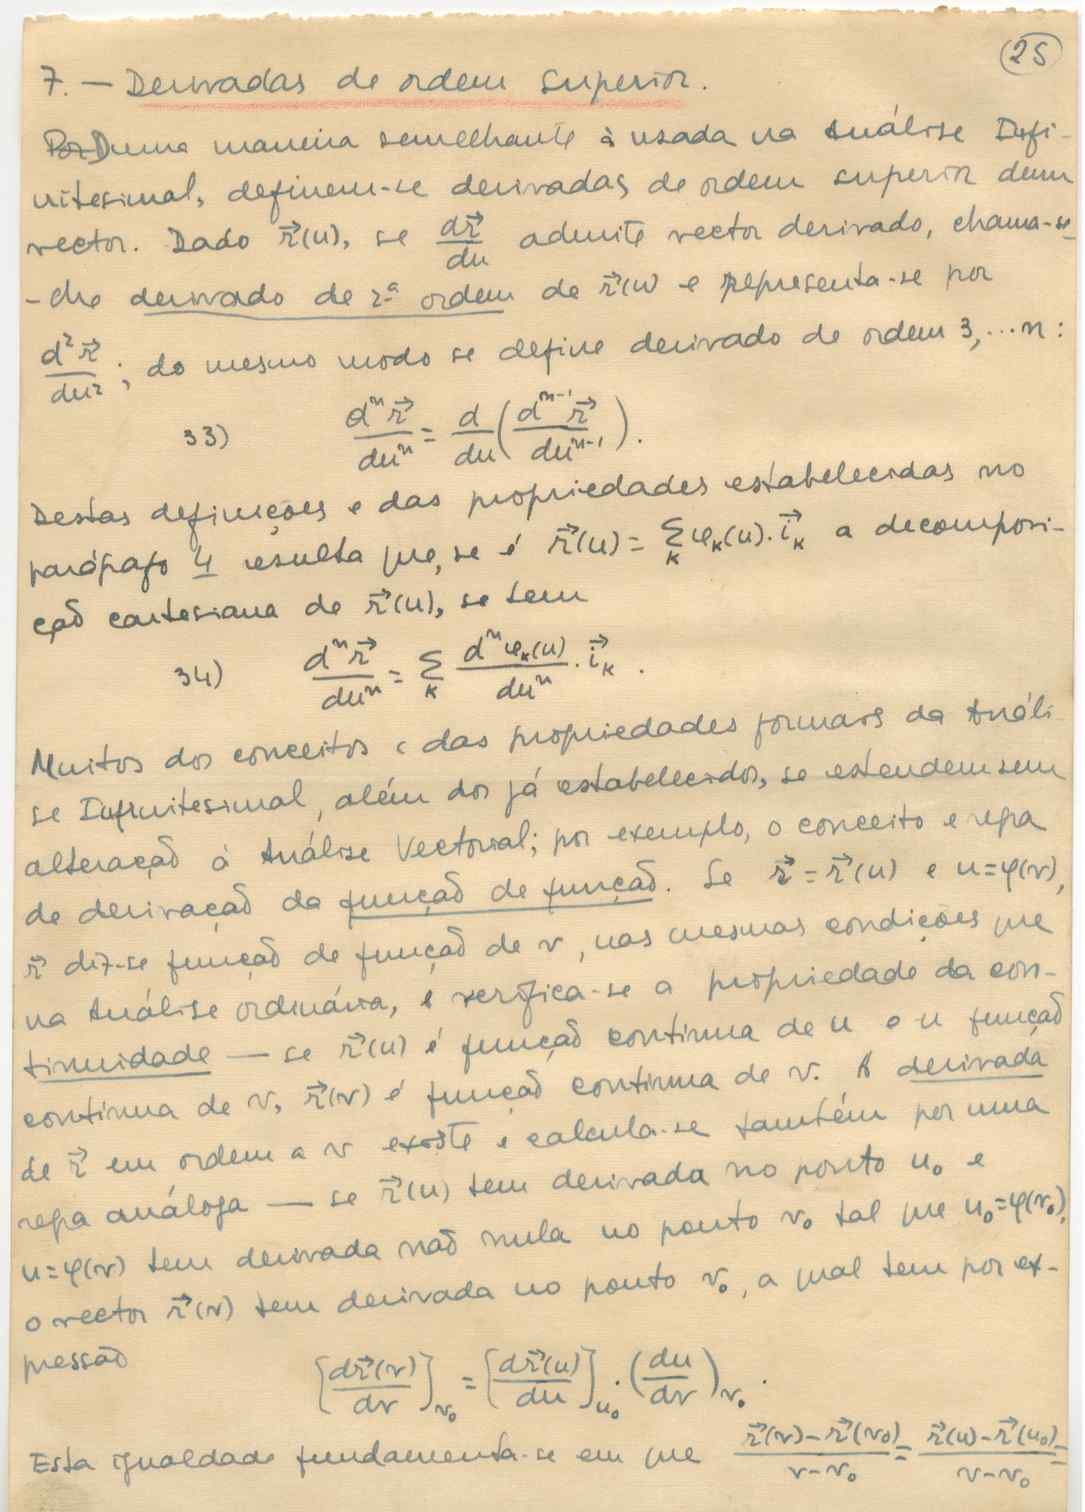 25
7. — Derivadas de ordem superior.
Por Duma maneira semelhante à usada na Análise Infi-
nitesimal, definem-se derivadas de ordem superior dum
vector. Dado $\vec{r}(u)$, se $\frac{d\vec{r}}{du}$ admite vector derivado, chama-se-
-lhe derivado de 2ª ordem de $\vec{r}(u)$ e representa-se por
$\frac{d^2\vec{r}}{du^2}$; do mesmo modo se define derivado de ordem 3,...n:
33) $\frac{d^n\vec{r}}{du^n} = \frac{d}{du}\left(\frac{d^{n-1}\vec{r}}{du^{n-1}}\right)$.
Destas definições e das propriedades estabelecidas no
parágrafo 4 resulta que, se é $\vec{r}(u) = \sum_k \varphi_k(u) \cdot \vec{i}_k$ a decomposi-
ção cartesiana de $\vec{r}(u)$, se tem
34) $\frac{d^n\vec{r}}{du^n} = \sum_k \frac{d^n\varphi_k(u)}{du^n} \cdot \vec{i}_k$.
Muitos dos conceitos e das propriedades formais da Análi-
se Infinitesimal, além dos já estabelecidos, se estendem sem
alteração à Análise Vectorial; por exemplo, o conceito e regra
de derivação da função de função. Se $\vec{r} = \vec{r}(u)$ e $u = \varphi(v)$,
$\vec{r}$ diz-se função de função de v, nas mesmas condições que
na Análise ordinária, e verifica-se a propriedade da con-
tinuidade — se $\vec{r}(u)$ é função contínua de u e u função
contínua de v, $\vec{r}(v)$ é função contínua de v. A derivada
de $\vec{r}$ em ordem a v existe e calcula-se também por uma
regra análoga — se $\vec{r}(u)$ tem derivada no ponto $u_0$ e
$u = \varphi(v)$ tem derivada não nula no ponto $v_0$ tal que $u_0 = \varphi(v_0)$,
o vector $\vec{r}(v)$ tem derivada no ponto $v_0$, a qual tem por ex-
pressão
$\left[\frac{d\vec{r}(v)}{dv}\right]_{v_0} = \left[\frac{d\vec{r}(u)}{du}\right]_{u_0} \cdot \left(\frac{du}{dv}\right)_{v_0}$.
Esta igualdade fundamenta-se em que $\frac{\vec{r}(v) - \vec{r}(v_0)}{v - v_0} = \frac{\vec{r}(u) - \vec{r}(u_0)}{v - v_0} =$